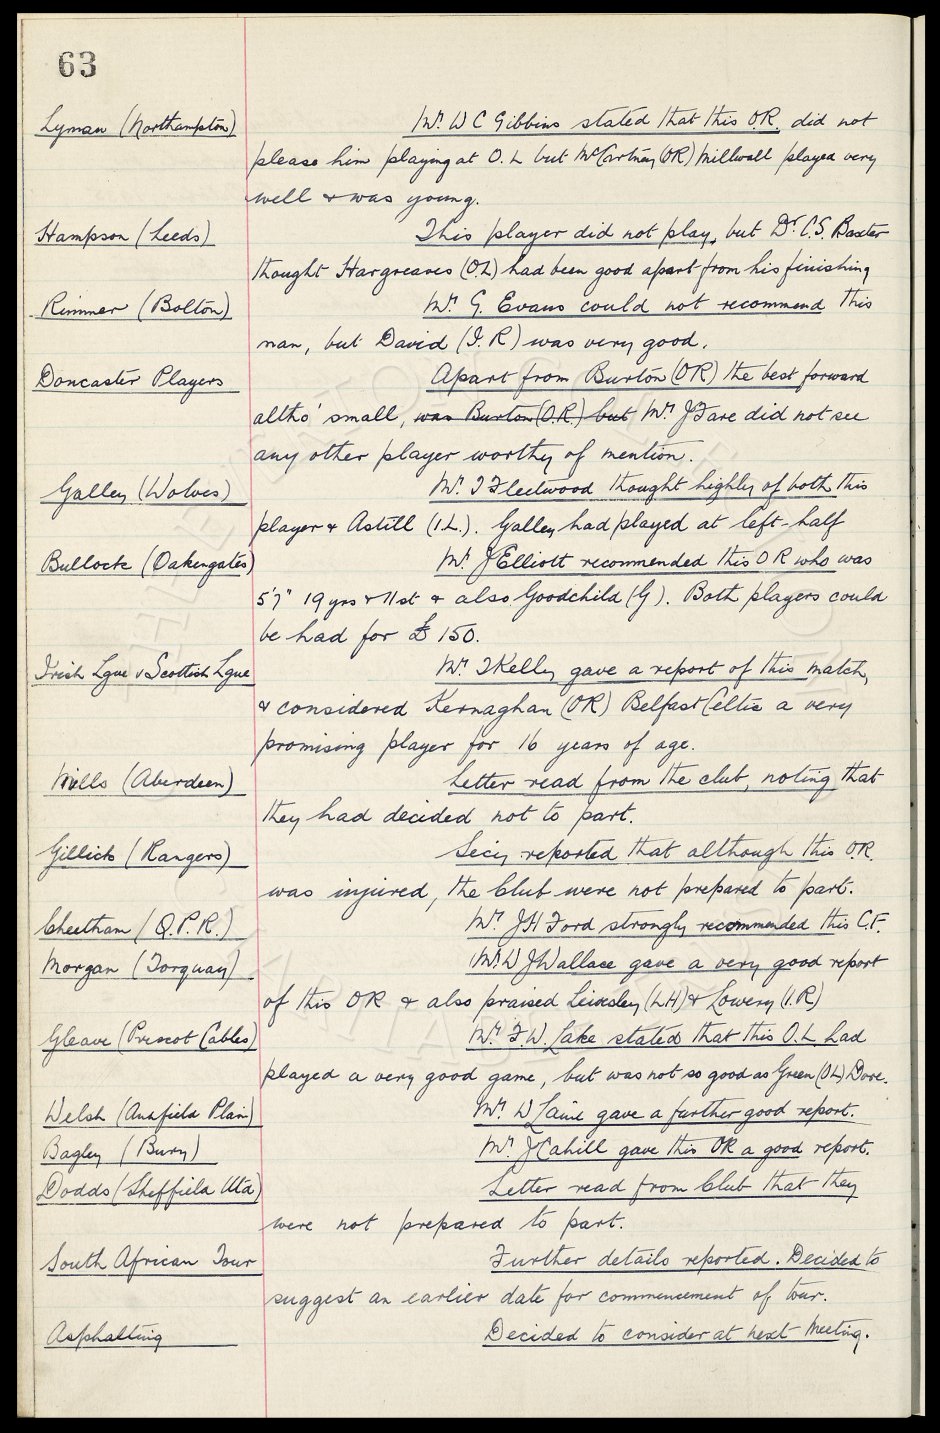 63
Lyman (Northampton) Mr. W C Gibbins stated that this O.R. did not
please him playing at O.L but McCartney (OR) Millwall played very
well & was young.
Hampson (Leeds) This player did not play, but Dr. C.S. Baxter
thought Hargreaves (O.L) had been good apart from his finishing
Rimmer (Bolton) Mr. G. Evans could not recommend this
man, but David (I.R) was very good.
Doncaster Players Apart from Burton (OR) the best forward
altho' small, was Burton (O.R.) but Mr. J Fare did not see
any other player worthy of mention.
Galley (Wolves) Mr. T Fleetwood thought highly of both this
player & Astill (I.L.). Galley had played at left-half
Bullock (Oakengates) Mr. J Elliott recommended this OR who was
5'7" 19 yrs & 11st & also Goodchild (G). Both players could
be had for £150.
Irish Lgue v Scottish Lgue Mr. T Kelly gave a report of this match,
& considered Kernaghan (OR) Belfast Celtic a very
promising player for 16 years of age.
Mills (Aberdeen) Letter read from the club, noting that
they had decided not to part.
Gillick (Rangers) Secy reported that although this O.R.
was injured, the Club were not prepared to part.
Cheetham (Q.P.R.) Mr. J H Ford strongly recommended this C.F.
Morgan (Torquay) Mr. W J Wallace gave a very good report
of this OR & also praised (LH) & Lowery (I.R)
Gleave (Prescot Cables) Mr. F.W. Lake stated that this O.L. had
played a very good game, but was not so good as Green (OL) Dove.
Welsh (Annfield Plain) Mr. W Laine gave a further good report.
Bagley (Bury) Mr. J Cahill gave this OR a good report.
Dodds (Sheffield Utd) Letter read from Club that they
were not prepared to part.
South African Tour Further details reported. Decided to
suggest an earlier date for commencement of tour.
Asphalting Decided to consider at next Meeting.